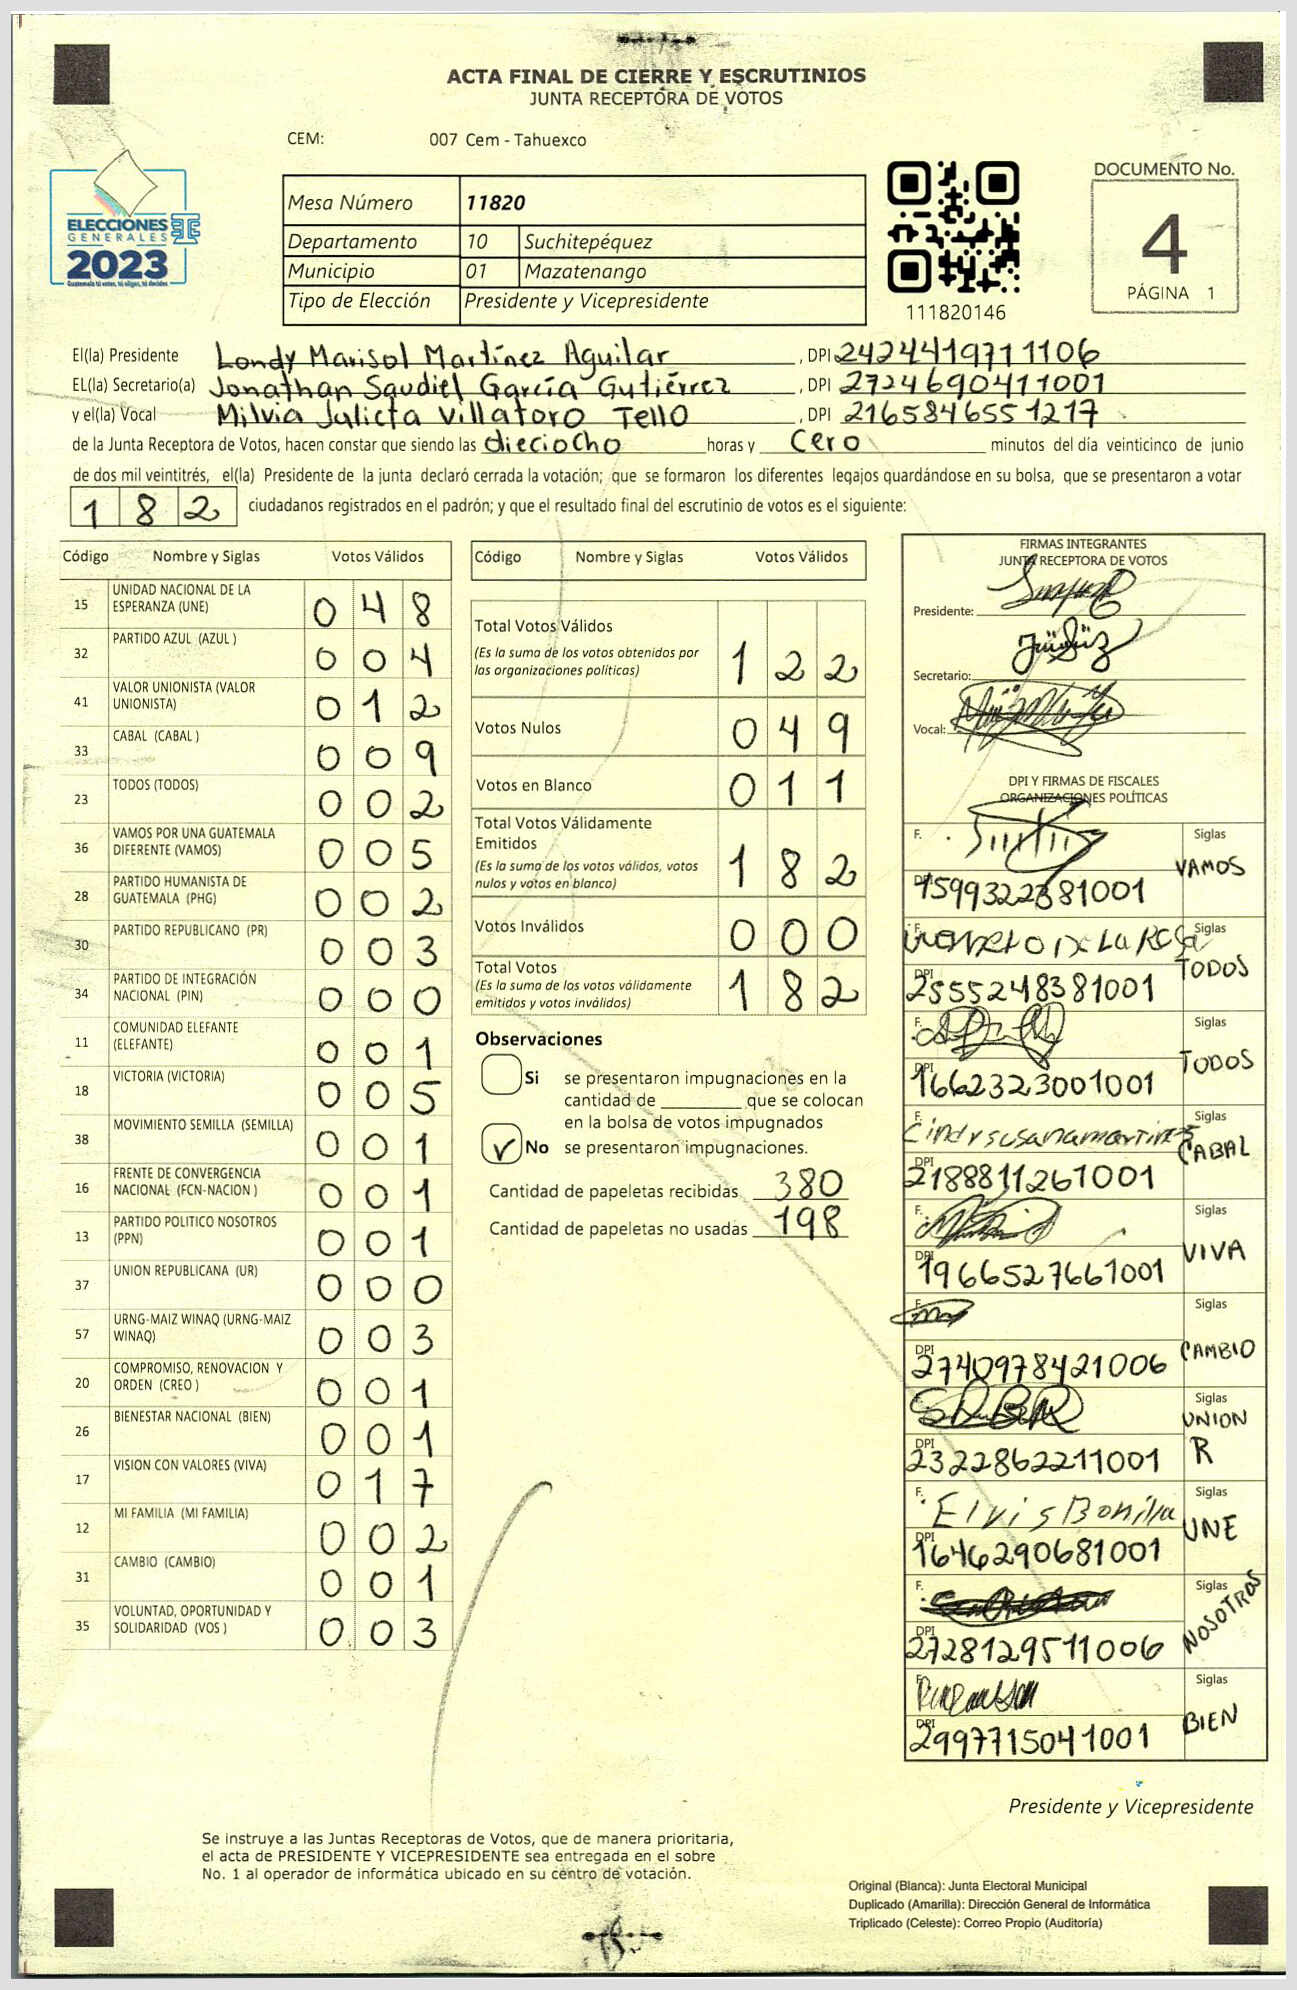 ACTA FINAL DE CIERRE Y ESCRUTINIOS
JUNTA RECEPTORA DE VOTOS
CEM: 007 Cem - Tahuexco
ELECCIONES
GENERALES
2023
Guatemala tú votas, tú eliges, tú decides
Mesa Número 11820
Departamento 10 Suchitepéquez
Municipio 01 Mazatenango
Tipo de Elección Presidente y Vicepresidente
111820146
DOCUMENTO No.
4
PÁGINA 1
El(la) Presidente Londy Marisol Martínez Aguilar, DPI 2424419711106
EL(la) Secretario(a) Jonathan Saudiel García Gutiérrez, DPI 2724690411001
y el(la) Vocal Milvia Julieta Villatoro Tello, DPI 2165846551217
de la Junta Receptora de Votos, hacen constar que siendo las dieciocho horas y Cero minutos del día veinticinco de junio
de dos mil veintitrés, el(la) Presidente de la junta declaró cerrada la votación; que se formaron los diferentes legajos guardándose en su bolsa, que se presentaron a votar
182 ciudadanos registrados en el padrón; y que el resultado final del escrutinio de votos es el siguiente:
Código Nombre y Siglas Votos Válidos
15 UNIDAD NACIONAL DE LA ESPERANZA (UNE) 048
32 PARTIDO AZUL (AZUL ) 004
41 VALOR UNIONISTA (VALOR UNIONISTA) 012
33 CABAL (CABAL ) 009
23 TODOS (TODOS) 002
36 VAMOS POR UNA GUATEMALA DIFERENTE (VAMOS) 005
28 PARTIDO HUMANISTA DE GUATEMALA (PHG) 002
30 PARTIDO REPUBLICANO (PR) 003
34 PARTIDO DE INTEGRACIÓN NACIONAL (PIN) 000
11 COMUNIDAD ELEFANTE (ELEFANTE) 001
18 VICTORIA (VICTORIA) 005
38 MOVIMIENTO SEMILLA (SEMILLA) 001
16 FRENTE DE CONVERGENCIA NACIONAL (FCN-NACION ) 001
13 PARTIDO POLITICO NOSOTROS (PPN) 001
37 UNION REPUBLICANA (UR) 000
57 URNG-MAIZ WINAQ (URNG-MAIZ WINAQ) 003
20 COMPROMISO, RENOVACION Y ORDEN (CREO ) 001
26 BIENESTAR NACIONAL (BIEN) 001
17 VISION CON VALORES (VIVA) 017
12 MI FAMILIA (MI FAMILIA) 002
31 CAMBIO (CAMBIO) 001
35 VOLUNTAD, OPORTUNIDAD Y SOLIDARIDAD (VOS ) 003
Código Nombre y Siglas Votos Válidos
Total Votos Válidos
(Es la suma de los votos obtenidos por
las organizaciones políticas) 122
Votos Nulos 049
Votos en Blanco 011
Total Votos Válidamente
Emitidos
(Es la suma de los votos válidos, votos
nulos y votos en blanco) 182
Votos Inválidos 000
Total Votos
(Es la suma de los votos válidamente
emitidos y votos inválidos) 182
Observaciones
Si se presentaron impugnaciones en la
cantidad de ________ que se colocan
en la bolsa de votos impugnados
No se presentaron impugnaciones.
Cantidad de papeletas recibidas 380
Cantidad de papeletas no usadas 198
FIRMAS INTEGRANTES
JUNTA RECEPTORA DE VOTOS
Presidente:
Secretario:
Vocal:
DPI Y FIRMAS DE FISCALES
ORGANIZACIONES POLÍTICAS
F. Siglas
VAMOS
DPI 1599322381001
F. DE LA ROSA Siglas
TODOS
DPI 2555248381001
F. Siglas
TODOS
DPI 1662323001001
F. Cindy susana martinez Siglas
CABAL
DPI 2188811261001
F. Siglas
VIVA
DPI 1966527661001
F. Siglas
CAMBIO
DPI 2740978421006
F. Siglas
UNION
R
DPI 2322862211001
F. Elvis Bonilla Siglas
UNE
DPI 1646290681001
F. Siglas
NOSOTROS
DPI 2728129511006
F. Siglas
BIEN
DPI 2997715041001
Presidente y Vicepresidente
Se instruye a las Juntas Receptoras de Votos, que de manera prioritaria,
el acta de PRESIDENTE Y VICEPRESIDENTE sea entregada en el sobre
No. 1 al operador de informática ubicado en su céntro de votación.
Original (Blanca): Junta Electoral Municipal
Duplicado (Amarilla): Dirección General de Informática
Triplicado (Celeste): Correo Propio (Auditoría)